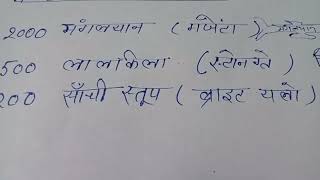 2000 मंगलयान (मेजेंटा)
500 लालकिला (स्टोनग्रे)
200 साँची स्तूप (ब्राइट यलो)